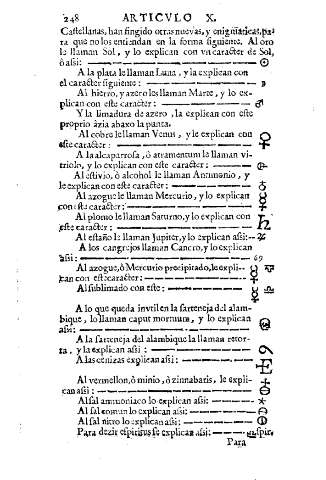 248 ARTICVLO X.
Castellanas, han fingido otras nuevas, y enigmaticas, pa-
ra que no los entiendan en la forma siguiente. Al oro
le llaman Sol, y lo explican con vn caracter de Sol,
ò assi: ☉
A la plata le llaman Luna, y la explican con
el caracter siguiente: ☽
Al hierro, y azero les llaman Marte, y lo ex-
plican con este caracter: ♂
Y la limadura de azero, la explican con este
proprio àzia abaxo la punta.
Al cobre le llaman Venus, y le explican con
este caracter: ♀
A la alcaparrosa, ò atramentum le llaman vi-
triolo, y lo explican con este caracter:
Al estivio, ò alcohol le llaman Antimonio, y
le explican con este caracter: ♁
Al azogue le llaman Mercurio, y lo explican
con este caracter: ☿
Al plomo le llaman Saturno, y lo explican con
este caracter: ♄
Al estaño le llaman Jupiter, y lo explican assi: ♃
A los cangrejos llaman Cancro, y lo explican
assi: 69
Al azogue, ò Mercurio precipitado, le expli-
can con este caracter:
Al sublimado con este:
A lo que queda invtil en la sarteneja del alam-
bique, lo llaman caput mortuum, y lo explican
assi:
A la sarteneja del alambique la llaman retor-
ta, y la explican assi:
A las cenizas explican assi:
Al vermellon, ò minio, ò zinnabaris, le expli-
can assi:
Al sal ammoniaco lo explican assi: *
Al sal comun lo explican assi:
Al sal nitro lo explican assi:
Para dezir espiritus se explican assi: spir.
Para